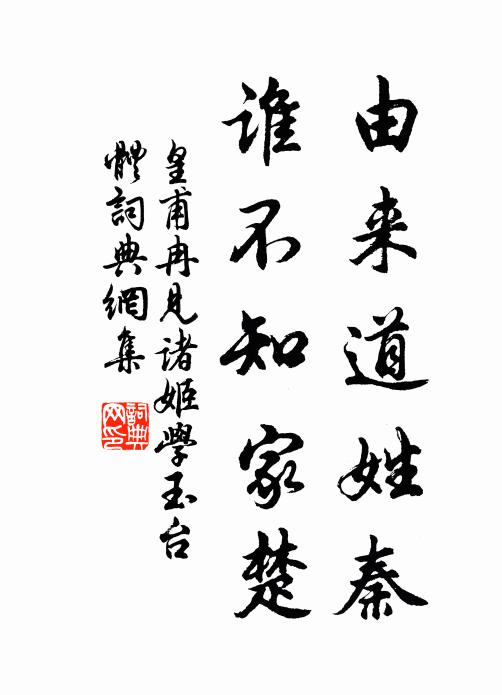 由来道姓秦
谁不知家楚
皇甫冉见诸姬學玉台
體詞典網集
詞典
网印